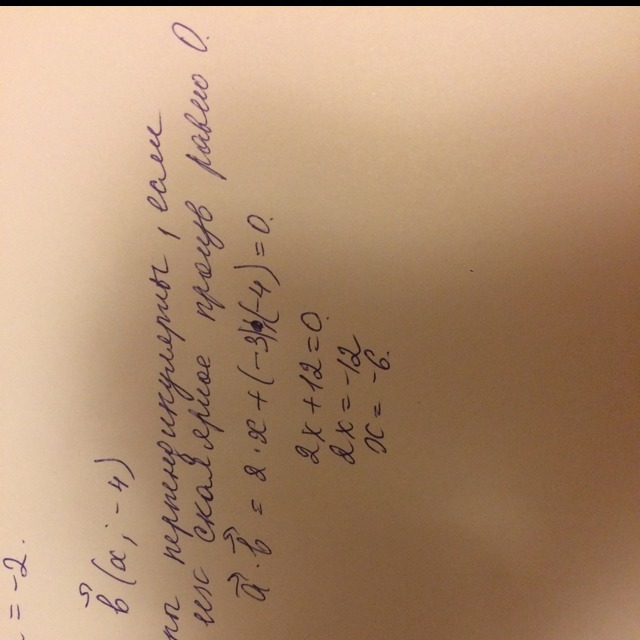 = -2.
b⃗ (x; -4)
перпендикулярны, если
их скалярное произв равно 0.
a⃗ · b⃗ = 2 · x + (-3)(-4) = 0.
2x + 12 = 0.
2x = -12
x = -6.